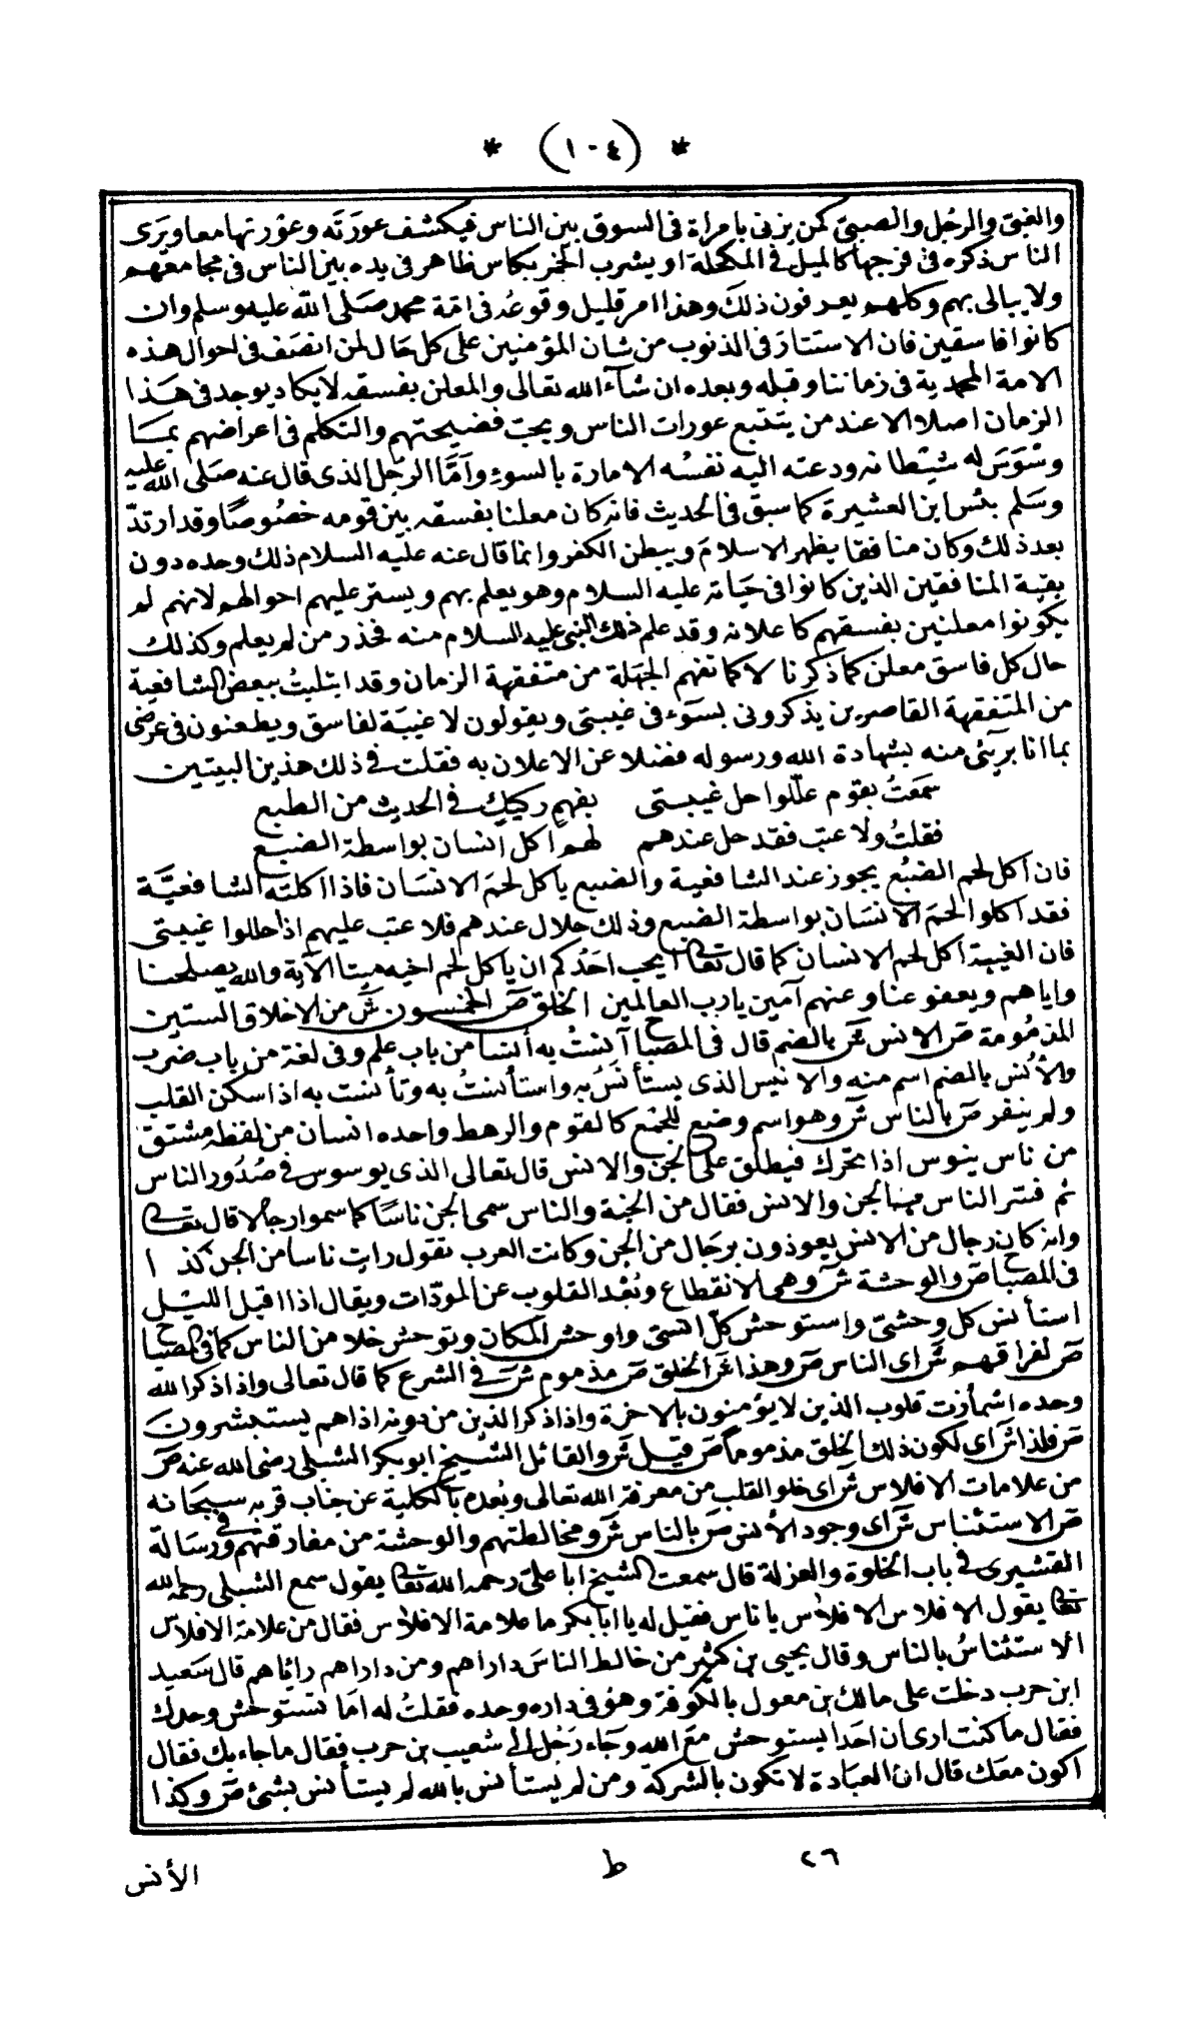 * (١٠٤) *
والغني والرجُل والصبيّ كمن يزنى بامراة فى السوق بين الناس فيكشف عورَتَه وعوْرتها معا ويَرَى
الناس ذكره فى فرجها كالميل في المكحلة او يشرب الخمر بكاس ظاهر فى يده بين الناس فى مجامعهم
ولا يبالى بهم وكلهم يعرفون ذلكَ وهذا امر قليل وقوعُه فى امّة محمد صَلى الله عليه وسلم وان
كانوا فاسقين فان الاستتارَ فى الذنوب من شان المؤمنين على كل حَال لمن انصَف فى احوال هذه
الامة المحمدية فى زماننا وقبله وبعده ان شآء الله تعالى والمعلن بفسقه لا يكاد يوجد فى هَذا
الزمان اصلا الا عند من يتتبع عورات الناس ويحبّ فضيحتهم والتكلم فى اعراضهم بمَا
وسْوَسَ له شيْطانه ودعته اليه نفسُه الامارة بالسوءِ وآمّا الرجُل الذى قال عنه صَلى الله عليه
وسَلم بئس ابن العشيرة كما سبق فى الحديث فانه كان معلنا بفسقه بين قومه خصُوصًا وقد ارتدّ
بعد ذلك وكان منافقا يظهر الاسلامَ ويبطن الكفر وانما قال عنه عليه السلام ذلك وحده دون
بقية المنافقين الذين كانوا فى حيَاته عليه السلام وهو يعلم بهم ويستر عليهم احوالهم لانهم لم
يكونوا معلنين بفسقهم كاعلانه وقد علم ذلك النبى عليه السلام منه فحذر من لم يعلم وكذلك
حال كل فاسق معلن كما ذكرنا لا كما تفهم الجهَلة من متفقهة الزمان وقد ابتليتُ ببعض الشافعية
من المتفقهة القاصرين يذكرونى بسَوء فى غيبتى ويقولون لا غيبَة لفاسق ويطعنون فى عرضى
بما انا بريئ منه بشهادة الله ورسوله فضلا عن الاعلان به فقلت فى ذلك هذين البيتين
سمَعتُ بقوم علّلوا حل غيبتى بفهم ركيكٍ في الحديث من الطبع
فقلتُ ولا عتبَ فقد حل عندهم لهم اكل انسان بواسطة الضبع
فان اكل لحم الضبُع يجوز عند الشافعية والضبع ياكل لحمَ الانسَان فاذا اكلته الشافعيَّة
فقد اكلوا لحمَ الانسَان بواسطة الضبع وذلك حلال عندهم فلا عتبَ عليهم اذا حللوا غيبتى
فان الغيبة اكل لحم الانسان كما قال تعالى ايحب احَدُكم ان ياكل لحم اخيه ميتا الآية والله يصلحنا
واياهم ويعفو عنا وعنهم آمين يارب العالمين الخلق صَ الخمسون شَ من الاخلاق الستين
المذمُومة صَ الانس شَ بالضم قال فى المصباح آنستُ به أنسا من باب علم وفى لغة من باب ضرَب
والأُنس بالضم اسم منه والانيس الذى يستأنسُ به واستأنستُ به وتأنست به اذا سكن القلب
ولم ينفر صَ بالناس شَ وهو اسم وضع للجمْع كالقوم والرهط واحده انسان من لفظه مشتق
من ناس ينوس اذا تحرك فيطلق على الجن والانس قال تعالى الذى يوسوس في صُدُور الناس
ثم فسّر الناس بالجن والانس فقال من الجنة والناس سمى الجن ناسًا كما سموا رجالا قال تعالى
وانه كان رجال من الانس يعوذون برجَال من الجن وكانت العرب تقول رايت ناسا من الجن كذا
فى المصباح صَ والوحشة شَ وهى الانقطاع وبُعْد القلوب عن المودّات ويقال اذا اقبل الليْل
استأنس كل وحشىّ واستوحش كلّ انسىّ واوحش المكان وتوحش خلا من الناس كما فى المصباح
صَ لفراقهم شَ اى الناس صَ وهذا شَ الخلق صَ مذموم شَ في الشرع كما قال تعالى واذا ذكر الله
وحده اشمأزت قلوب الذين لا يؤمنون بالاخرة واذا ذكر الذين من دونه اذا هم يستبشرون
صَ فلذا شَ اى لكون ذلك الخلق مذموما صَ قيل شَ والقائل الشيخ ابو بكر الشبلى رضى الله عنه صَ
من علامات الافلاس شَ اى خلو القلب من معرفة الله تعالى وبُعده بالكلية عن جناب قربه سبحانه
صَ الاستئناس شَ اى وجود الأنس صَ بالناس شَ ومخالطتهم والوحشة من مفارقتهم وفى رسَالة
القشيرى فى باب الخلوة والعزلة قال سمعت الشيخ ابا علىّ رحمه الله تعالى يقول سمع الشبلى رحمه الله
تعالى يقول الافلاس الافلاس يا ناس فقيل له يا ابا بكر ما علامة الافلاس فقال من علامة الافلاس
الاستئناسُ بالناس وقال يحيى بن كثير من خالط الناسَ داراهم ومن داراهم راياهم قال سَعيد
ابن حرب دخلت على مالك بن معول بالكوفة وهوَ فى داره وحده فقلتُ له امَا تستوحش وحدك
فقال ما كنت ارى ان احَدا يستوحش معَ الله وجَاء رَجُل الى شعيب بن حرب فقال ما جاء بك فقال
اكون معَك قال انّ العبَادة لا تكون بالشركة ومن لم يَستأنس بالله لم يستأنس بشئ صَ وكذا
٢٦ ط الأنس